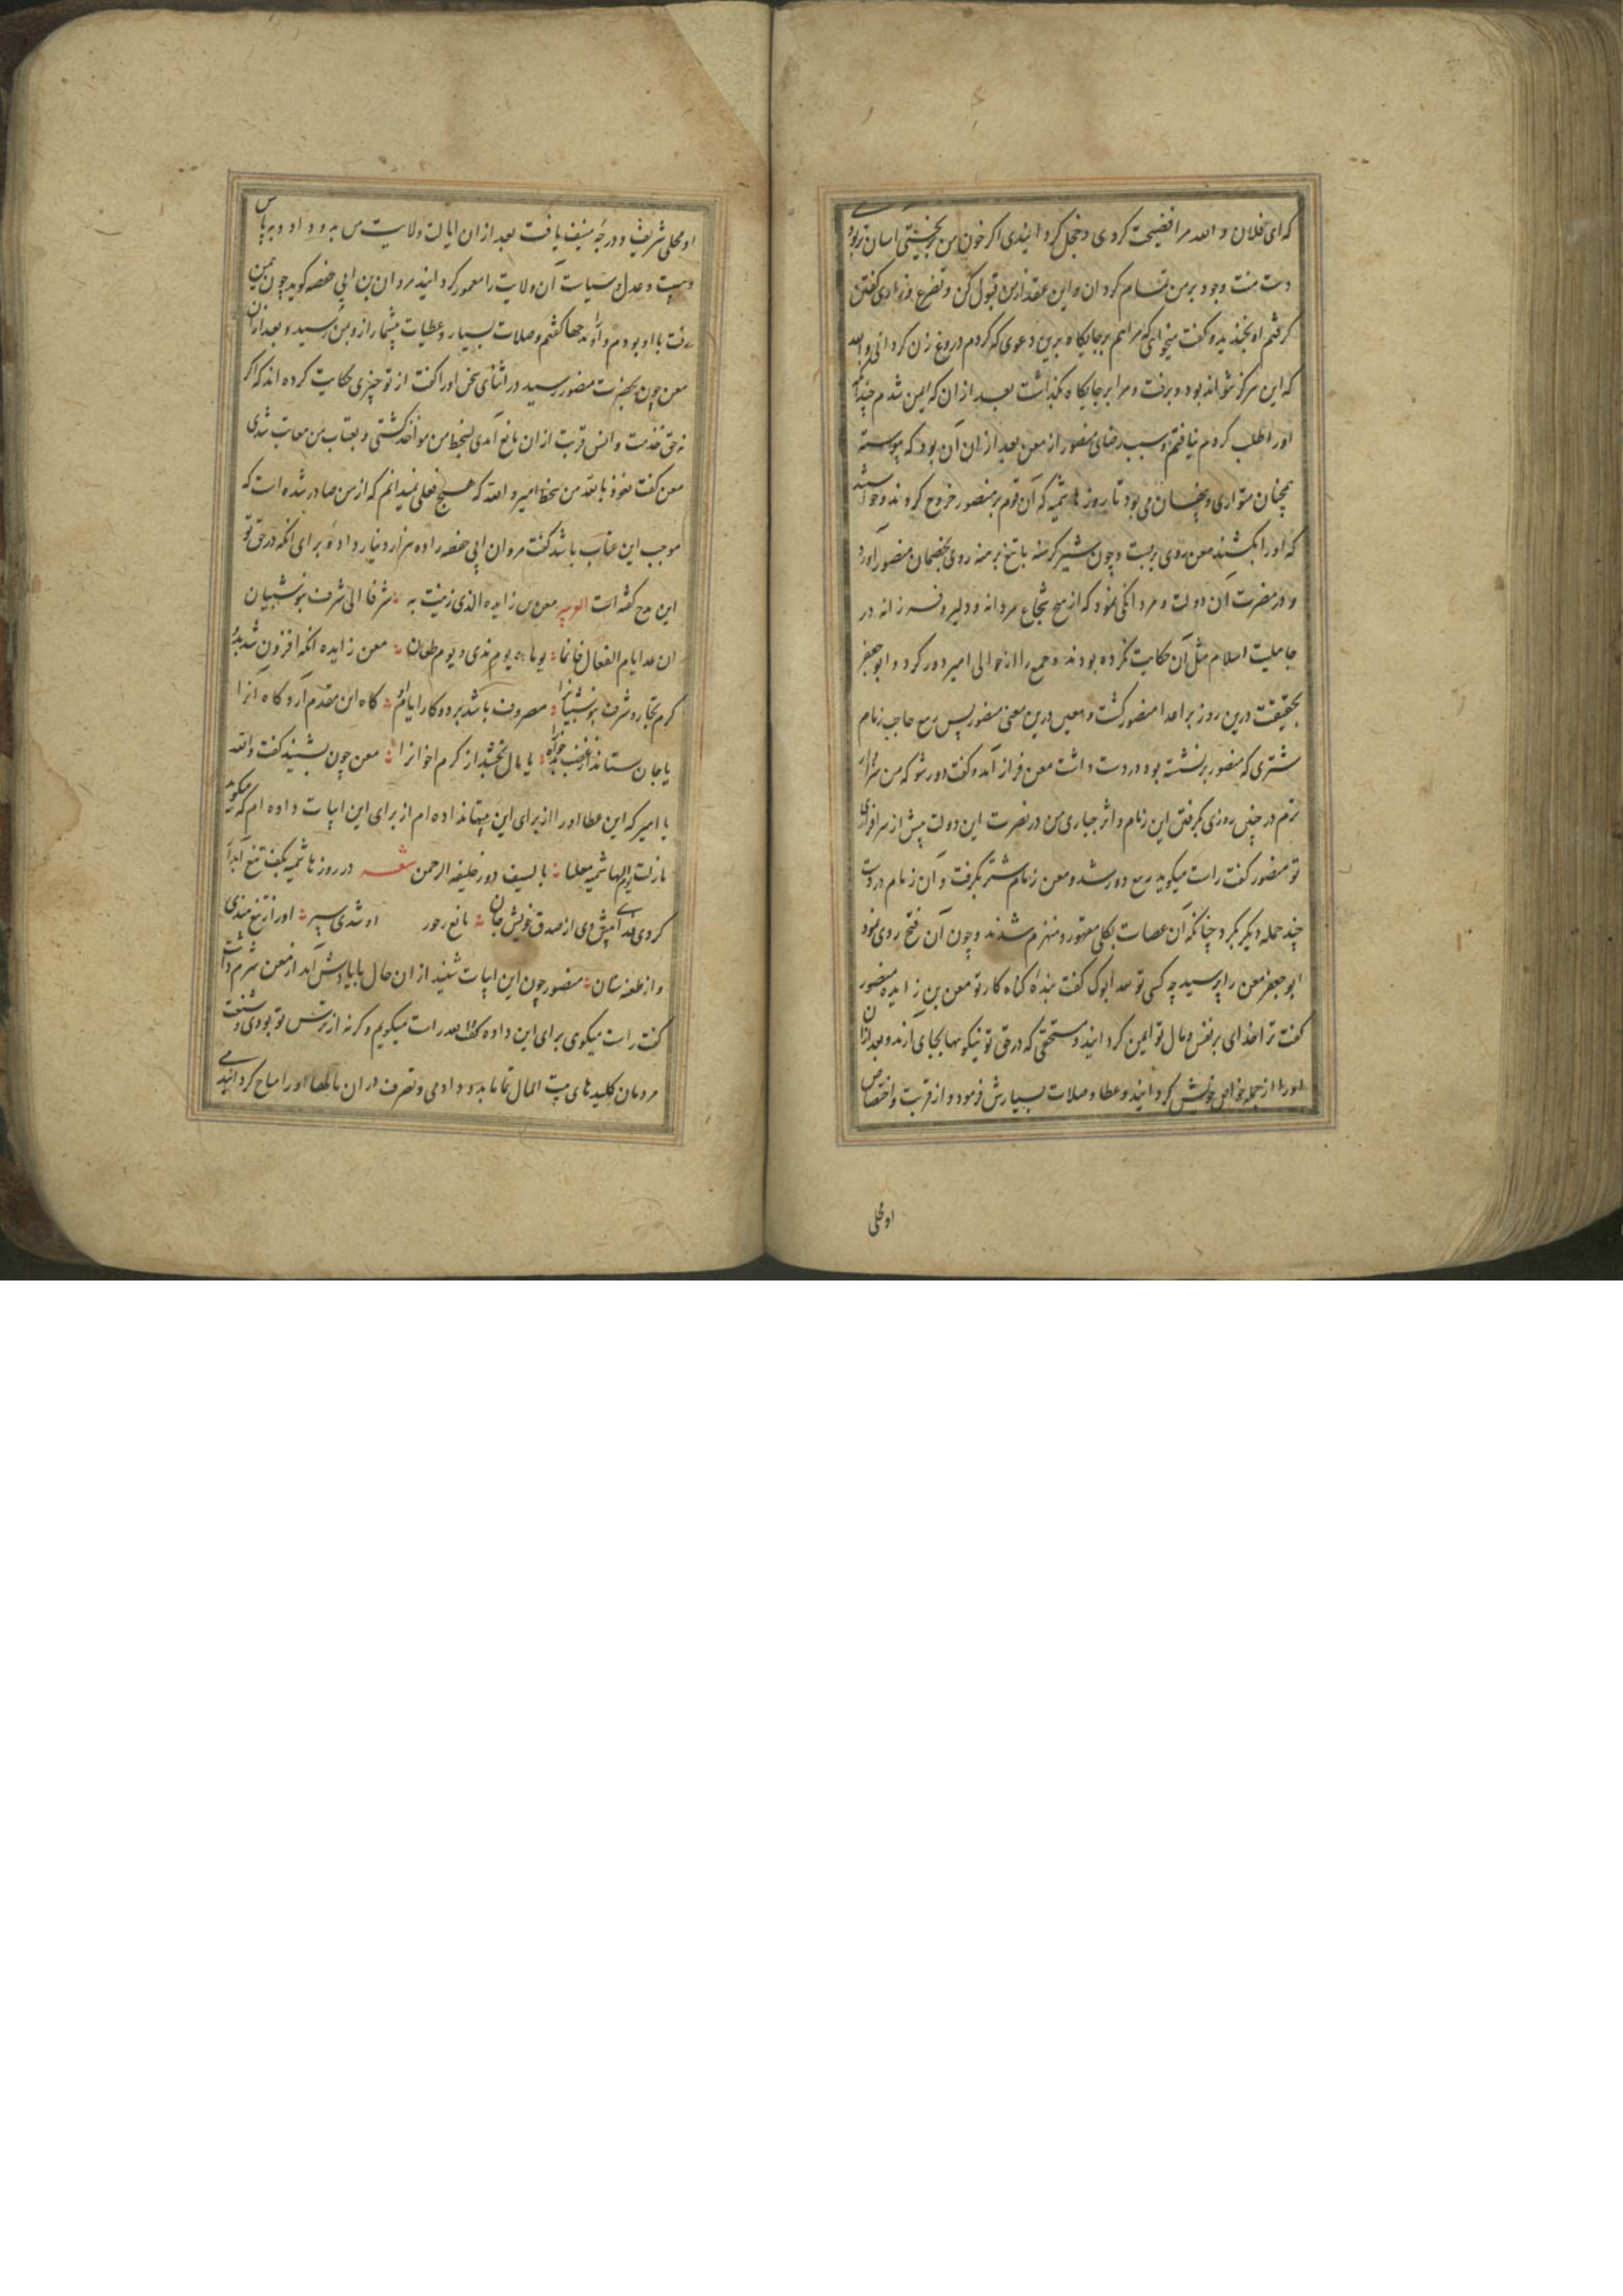 که ای فلان و الله مرا فضیحت کردی و خجل گردانیدی اگر خون من بریختی آسان تر بود
دست منت وجود بر من تمام گردان و این عقد از من قبول کن و تضرع و زاری کفتن
کرفتم او بخندید و کفت میخواهی که مرا هم بر جایگاه برین دعوی که کردم دروغ زن کردانی والله
که این هرکز نتواند بود و برفت و مرا بر جایگاه بگذاشت بعد از ان که ایمن شدم چندانکه
او را طلب کردم نیافتم و سبب رضای منصور از معن بعد از ان آن بود که پیوسته
همچنان متواری و پنهان می بود تا روز هاشمیه که آن قوم بر منصور خروج کردند و خواستند
که او را بکشند معن روی بربست و چون شیر کرسنه با تیغ برهنه روی بخصمان منصور آورد
و در نصرت ان دولت و مردانگی نمود که از هیچ شجاع مردانه و دلیر فرزانه در
جاهلیت و اسلام مثل آن حکایت نکرده بودند و جمع را از حوالی امیر دور کرد و ابو جعفر
بحقیقت درین روز بر اعدا منصور کشت و معین درین معنی منصور پس ربیع حاجب زمام
شتری که منصور برنشسته بود در دست داشت معن فراز آمد و کفت دور شو که من سزاوار
ترم در چنین روزی بکرفتن این زمام و اثر جباری من در نصرت این دولت پیش از سرافرازی
تو منصور کفت راست میکوید ربیع دور شد و معن زمام شتر بکرفت و آن زمام در دست
چند حمله دیکر بکرد چنانکه آن عصات بکلی مقهور و منهزم شدند و چون آن فتح روی نمود
ابو جعفر معن را پرسید چه کسی تو لله ابوک کفت بنده کناه کار تو معن بن زایده منصور
کفت ترا خدای بر نفس و مال تو ایمن کردانید و مستحقی که در حق تو نیکویها بجای آرند و بعد از ان
او را از جمله خواص خویش کردانید و عطا و صلات بسیارش فرمود و از قربت و اختصاص
او محلی
او محلی شریف و درجه منیف یافت بعد از ان ایالت ولایت یمن بدو داد و به پاس
و سیاست و عدل آن ولایت را معمور کردانید مروان بن ابی حفصه کوید چون بیمن
رفت با او بودم و او را مدحها کفتم و صلات بسیار و عطیات بیشمار از و بمن رسید و بعد از ان
معن چون بحضرت منصور رسید در اثنای سخن او را کفت از تو چیزی حکایت کرده اند که اگر
نه حق خدمت و انس قربت از ان مانع آمدی بسخط من مواخذ کشتی و بعتاب من معاتب شدی
معن کفت نعوذ بالله من سخط امیر والله که هیچ فعلی نمیدانم که از من صادر شده است که
موجب این عتاب باشد کفت مروان ابی حفصه را ده هزار دینار داده برای آنکه در حق تو
این مدح کفته است معن بن زایده الذی زیدت به شرفا الی شرف بنو شیبان
ان عد ایام الفعال فانما یوماه یوم ندی و یوم طعان معن زایده آنکه افزون شد بدو
کرم تجار و شرف بنو شیبانرا مصروف باشد بر دو کار ایام او کاه این مقدم آرد کاه آنرا
یا جان ستاند از غضب یا مال بخشد از کرم اخوانرا معن چون بشنید کفت والله
یا امیر که این عطا او را از برای این بیتها نداده ام از برای این ابیات داده ام که میکوید
مازلت یوم الهاشمیه معلنا بالسیف دون خلیفه الرحمن شعر در روز هاشمیه بکف تیغ آبدار
کردی فدای پیش وی از صدق خویش جان مانع او شدی سپر او را از تیغ هندی
و از طعنه سنان منصور چون این ابیات شنید از ان حال با یادش آمد از معن شرم داشت
کفت راست میکوی برای این داده کفت بلی و الله راست میکویم و کرنه از ترس تو بودی و شنعت
مردمان کلیدهای بیت المال تمام بدو دادمی و تصرف در ان مالها او را مباح کردانیدمی